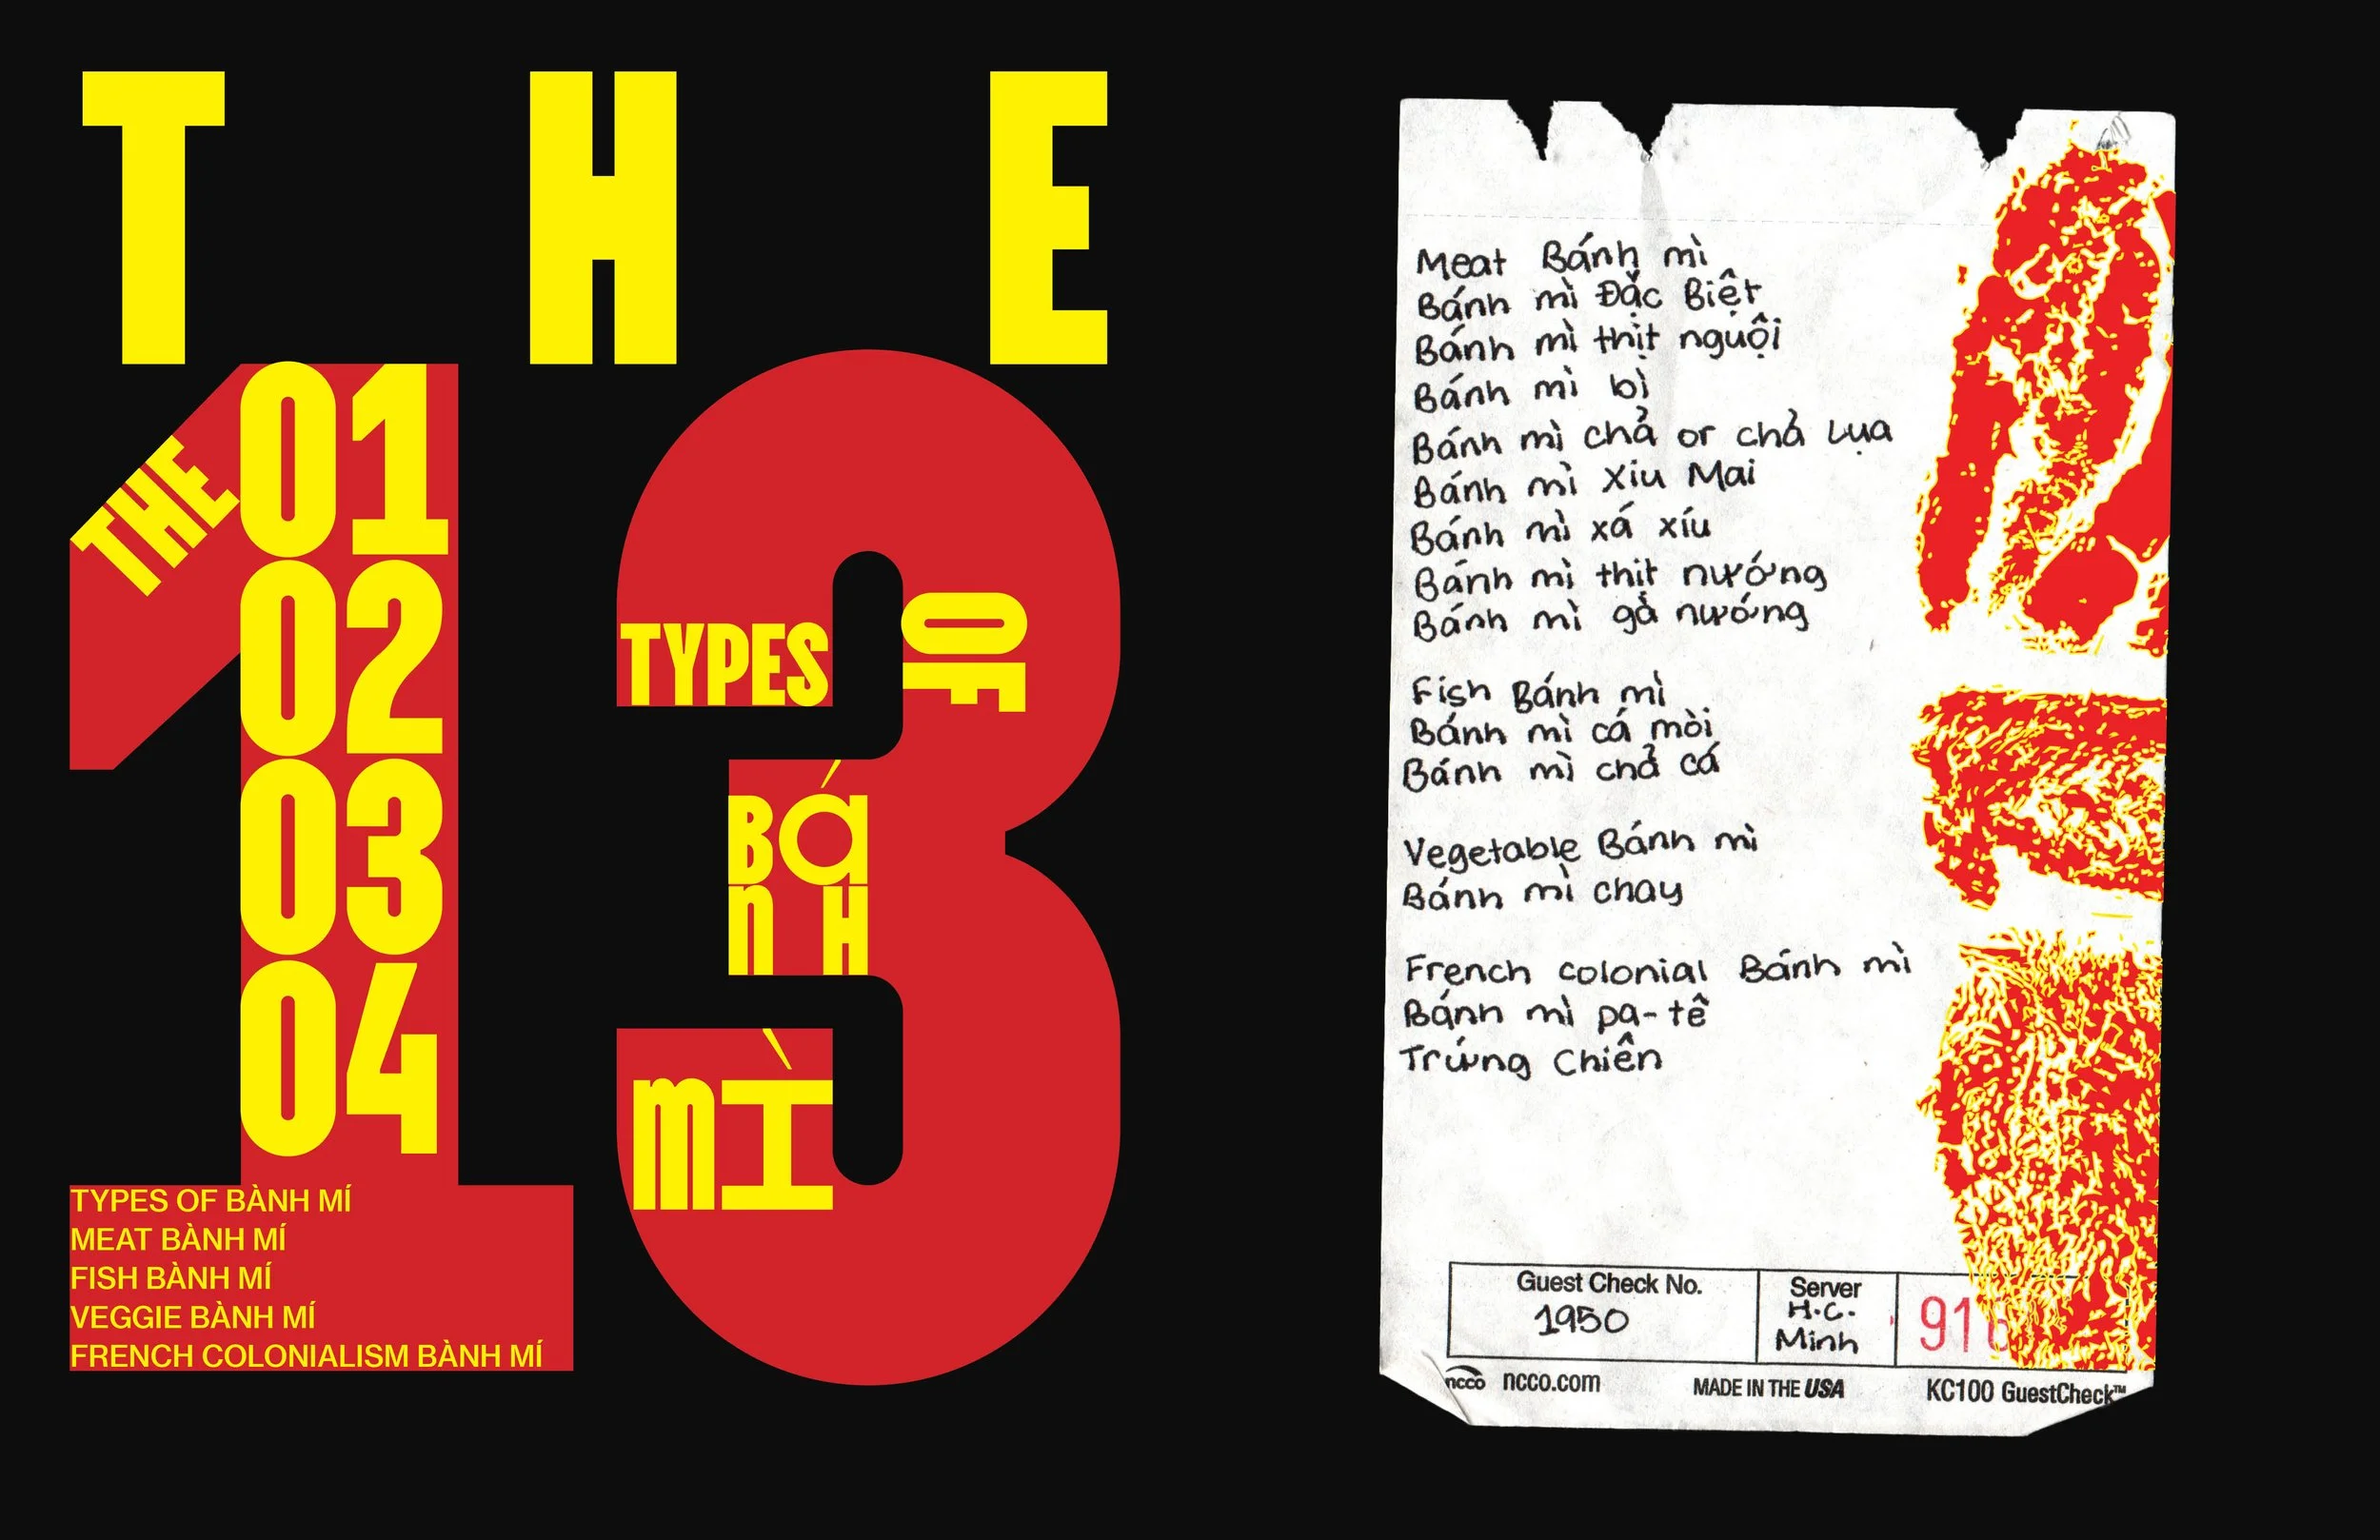 THE
THE
01
02
03
04
TYPES OF BÀNH MÍ
MEAT BÀNH MÍ
FISH BÀNH MÍ
VEGGIE BÀNH MÍ
FRENCH COLONIALISM BÀNH MÍ
13
TYPES
OF
Bá
nH
mÌ
Meat Bánh mì
Bánh mì Đặc Biệt
Bánh mì thịt nguội
Bánh mì bì
Bánh mì chả or chả lụa
Bánh mì Xiu Mai
Bánh mì xá xíu
Bánh mì thịt nướng
Bánh mì gà nướng
Fish Bánh mì
Bánh mì cá mòi
Bánh mì chả cá
Vegetable Bánh mì
Bánh mì chay
French colonial Bánh mì
Bánh mì pa-tê
Trứng Chiên
Guest Check No.
1950
Server
H.C.
Minh
ncco ncco.com MADE IN THE USA KC100 GuestCheck™